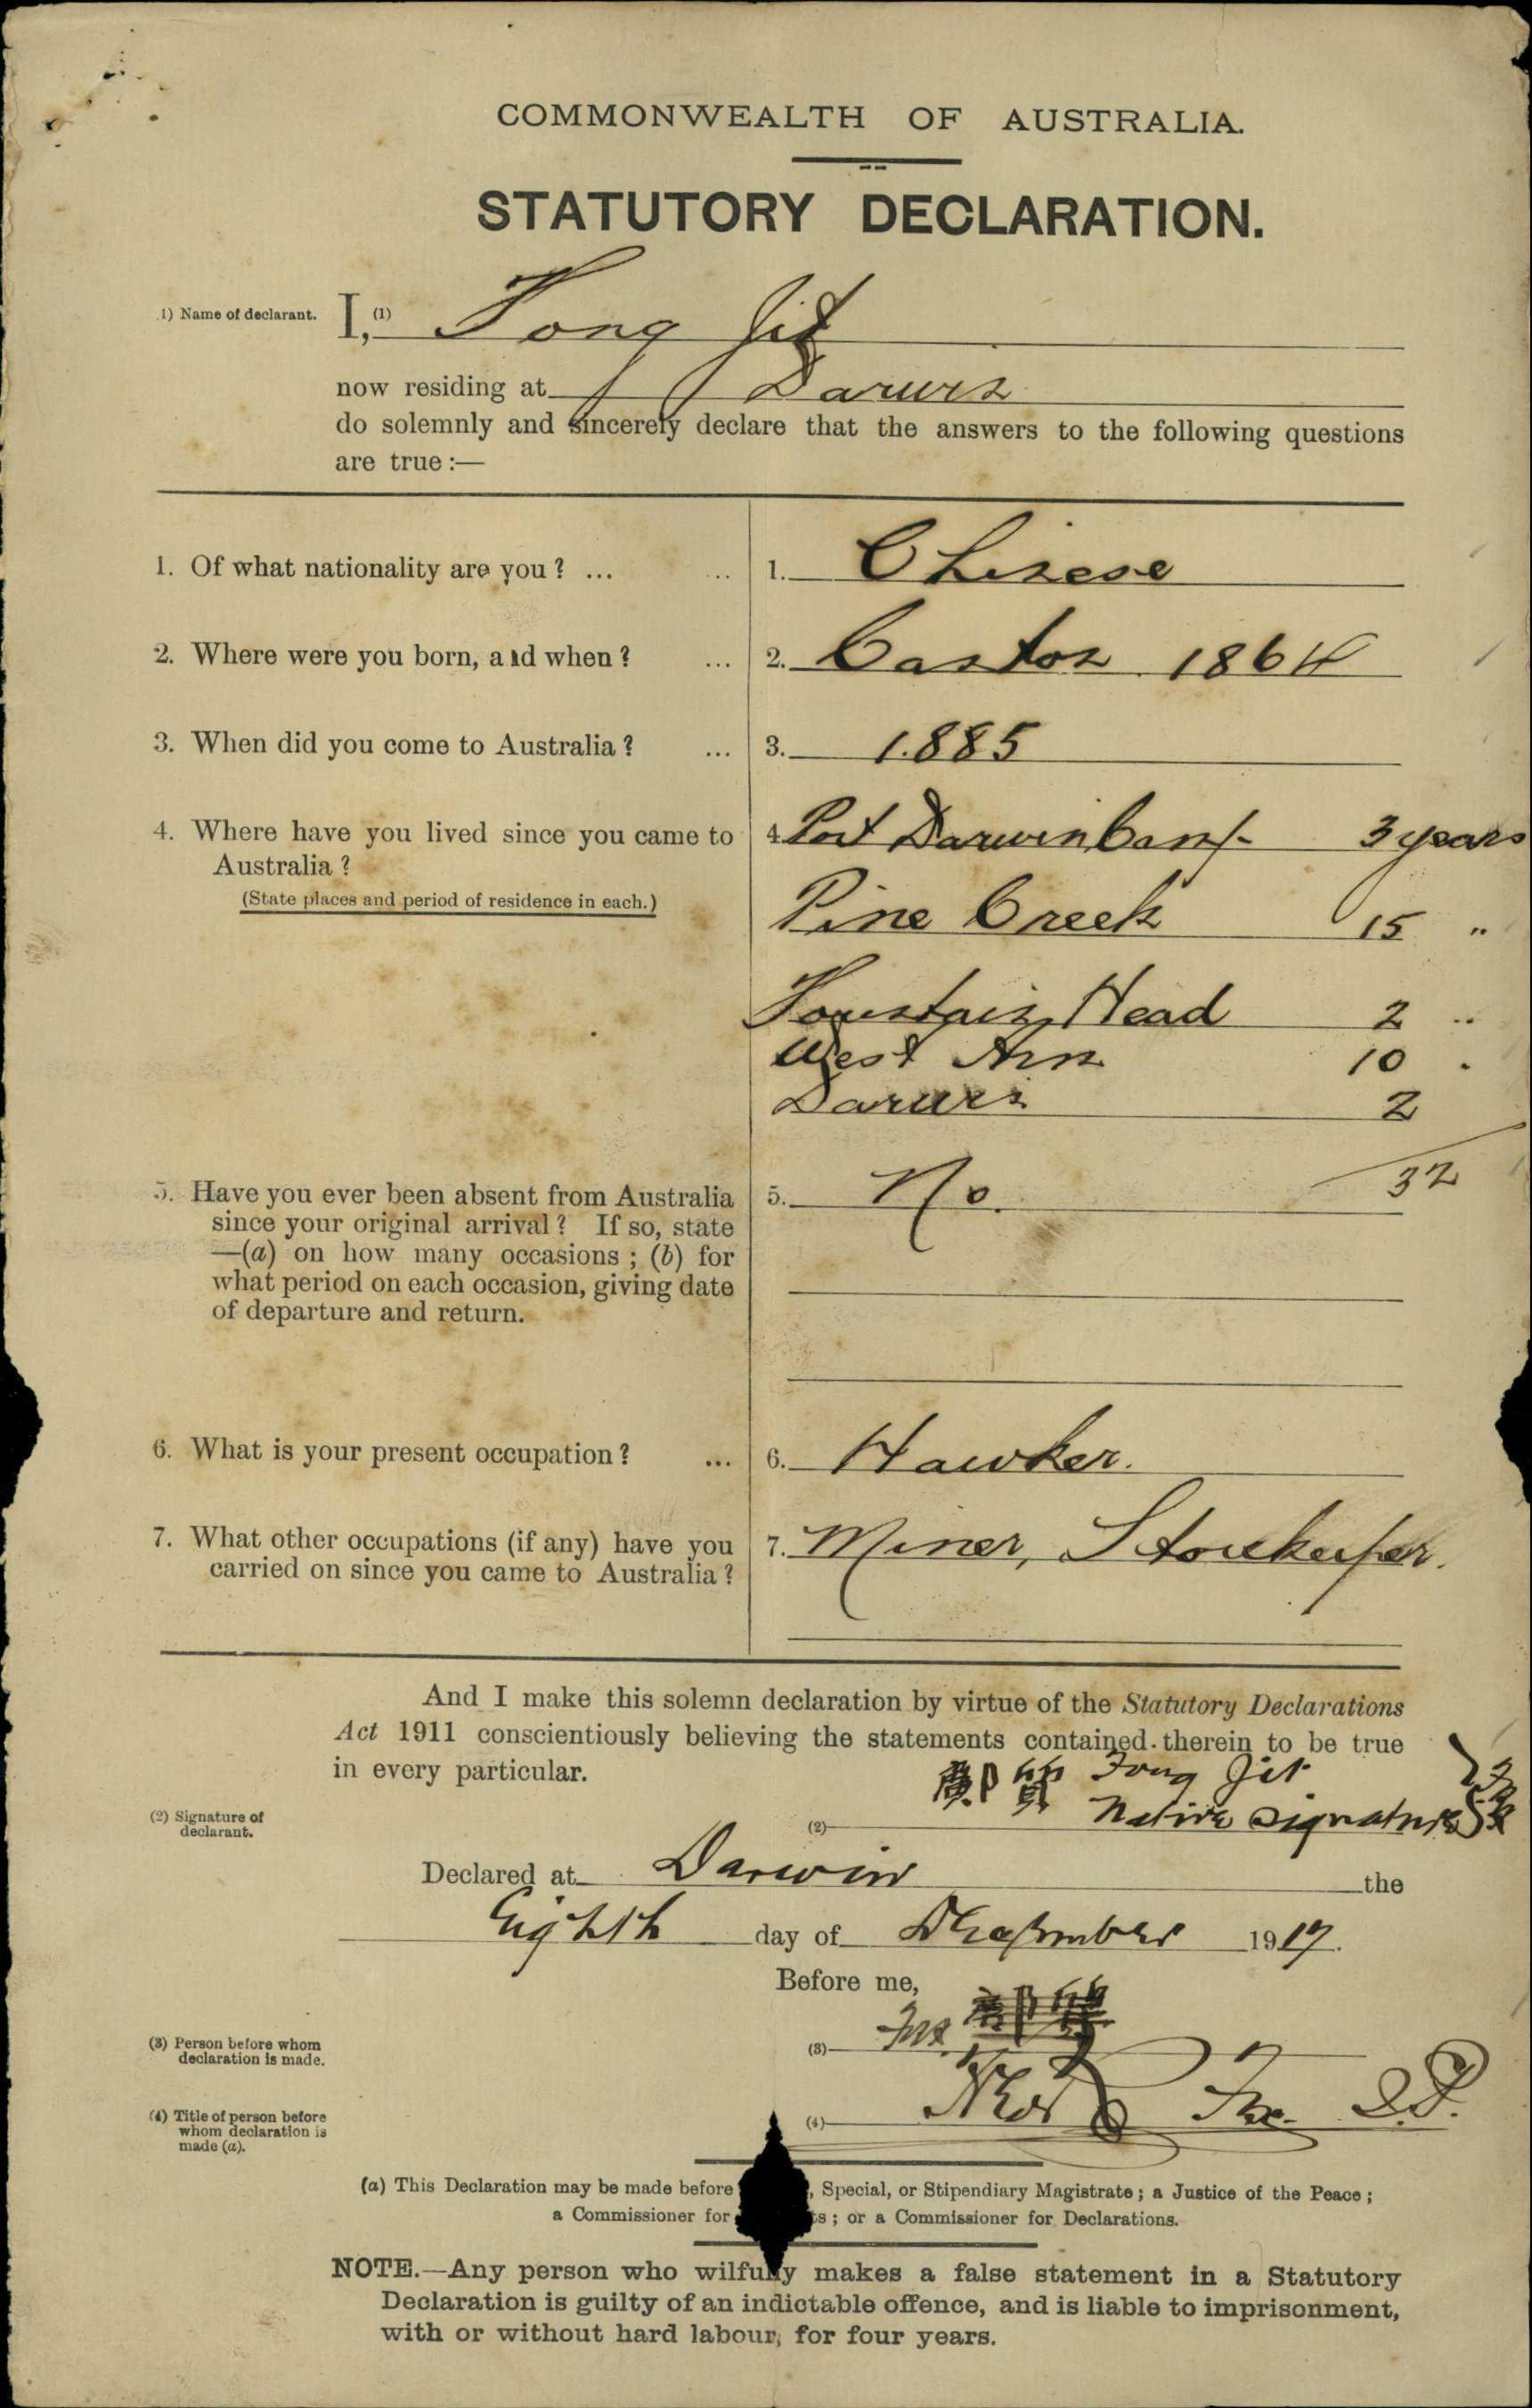 COMMONWEALTH OF AUSTRALIA.
STATUTORY DECLARATION.
1) Name of declarant. I, (1) Fong Jit
now residing at Darwin
do solemnly and sincerely declare that the answers to the following questions
are true :—
1. Of what nationality are you ? ... ... 1. Chinese
2. Where were you born, and when ? ... 2. Canton 1864
3. When did you come to Australia ? ... 3. 1885
4. Where have you lived since you came to 4. Port Darwin Camp 3 years
Australia ?
(State places and period of residence in each.)
Pine Creek 15 "
Fountain Head 2 "
West Arm 10 "
Darwin 2
32
5. Have you ever been absent from Australia 5. No.
since your original arrival ? If so, state
—(a) on how many occasions ; (b) for
what period on each occasion, giving date
of departure and return.
6. What is your present occupation ? ... 6. Hawker.
7. What other occupations (if any) have you 7. Miner, Storekeeper.
carried on since you came to Australia ?
And I make this solemn declaration by virtue of the Statutory Declarations
Act 1911 conscientiously believing the statements contained therein to be true
in every particular.
Fong Jit
(2) Signature of
declarant.
(2) Native Signature
Declared at Darwin the
Eighth day of December 1917.
Before me,
(3) Person before whom
declaration is made.
(3)
(4) Title of person before
whom declaration is
made (a).
(4) J.P.
(a) This Declaration may be made before , Special, or Stipendiary Magistrate ; a Justice of the Peace ;
a Commissioner for ts ; or a Commissioner for Declarations.
NOTE.—Any person who wilfully makes a false statement in a Statutory
Declaration is guilty of an indictable offence, and is liable to imprisonment,
with or without hard labour, for four years.